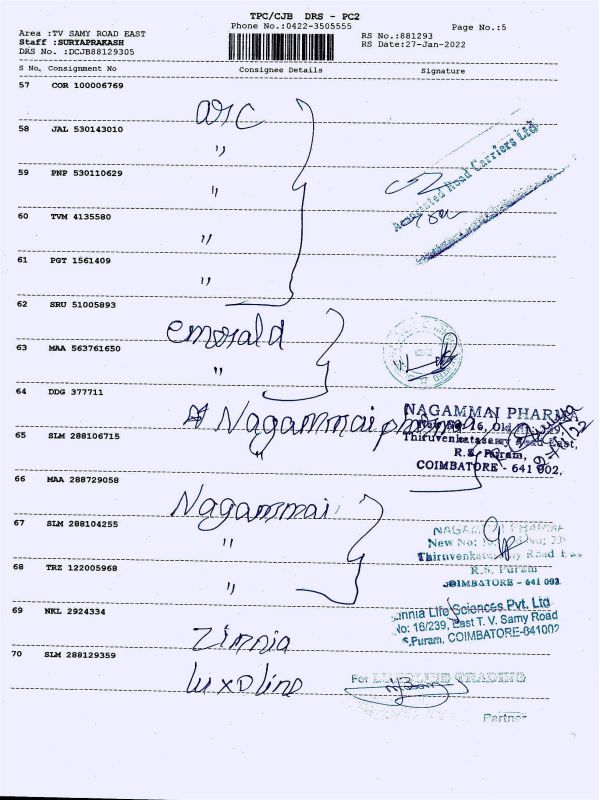 TPC/CJB DRS - PC2
Phone No.:0422-3505555
Page No.:5
Area :TV SAMY ROAD EAST
Staff :SURYAPRAKASH
DRS No. :DCJB88129305
RS No.:881293
RS Date:27-Jan-2022
S No. Consignment No Consignee Details Signature
57 COR 100006769
arc
58 JAL 530143010
"
59 PNP 530110629
"
60 TVM 4135580
"
61 PGT 1561409
"
Associated Road Carriers Ltd
62 SRU 51005893
emerald
63 MAA 563761650
"
64 DDG 377711
Nagammai pharma
NAGAMMAI PHARMA
65 SLM 288106715
"
Thiruvenkatasamy Road East,
R.S. Puram,
COIMBATORE - 641 002,
66 MAA 288729058
Nagammai
67 SLM 288104255
"
NAGAMMAI PHARMA
New No:
Thiruvenkatasamy Road East
R.S. Puram
COIMBATORE - 641 002
68 TRZ 122005968
"
69 NKL 2924334
Zimnia
Life Sciences Pvt. Ltd
No: 16/239, East T. V. Samy Road
R.S.Puram, COIMBATORE-641002
70 SLM 288129359
luxoline
For LUXOLINE TRADING
Partner